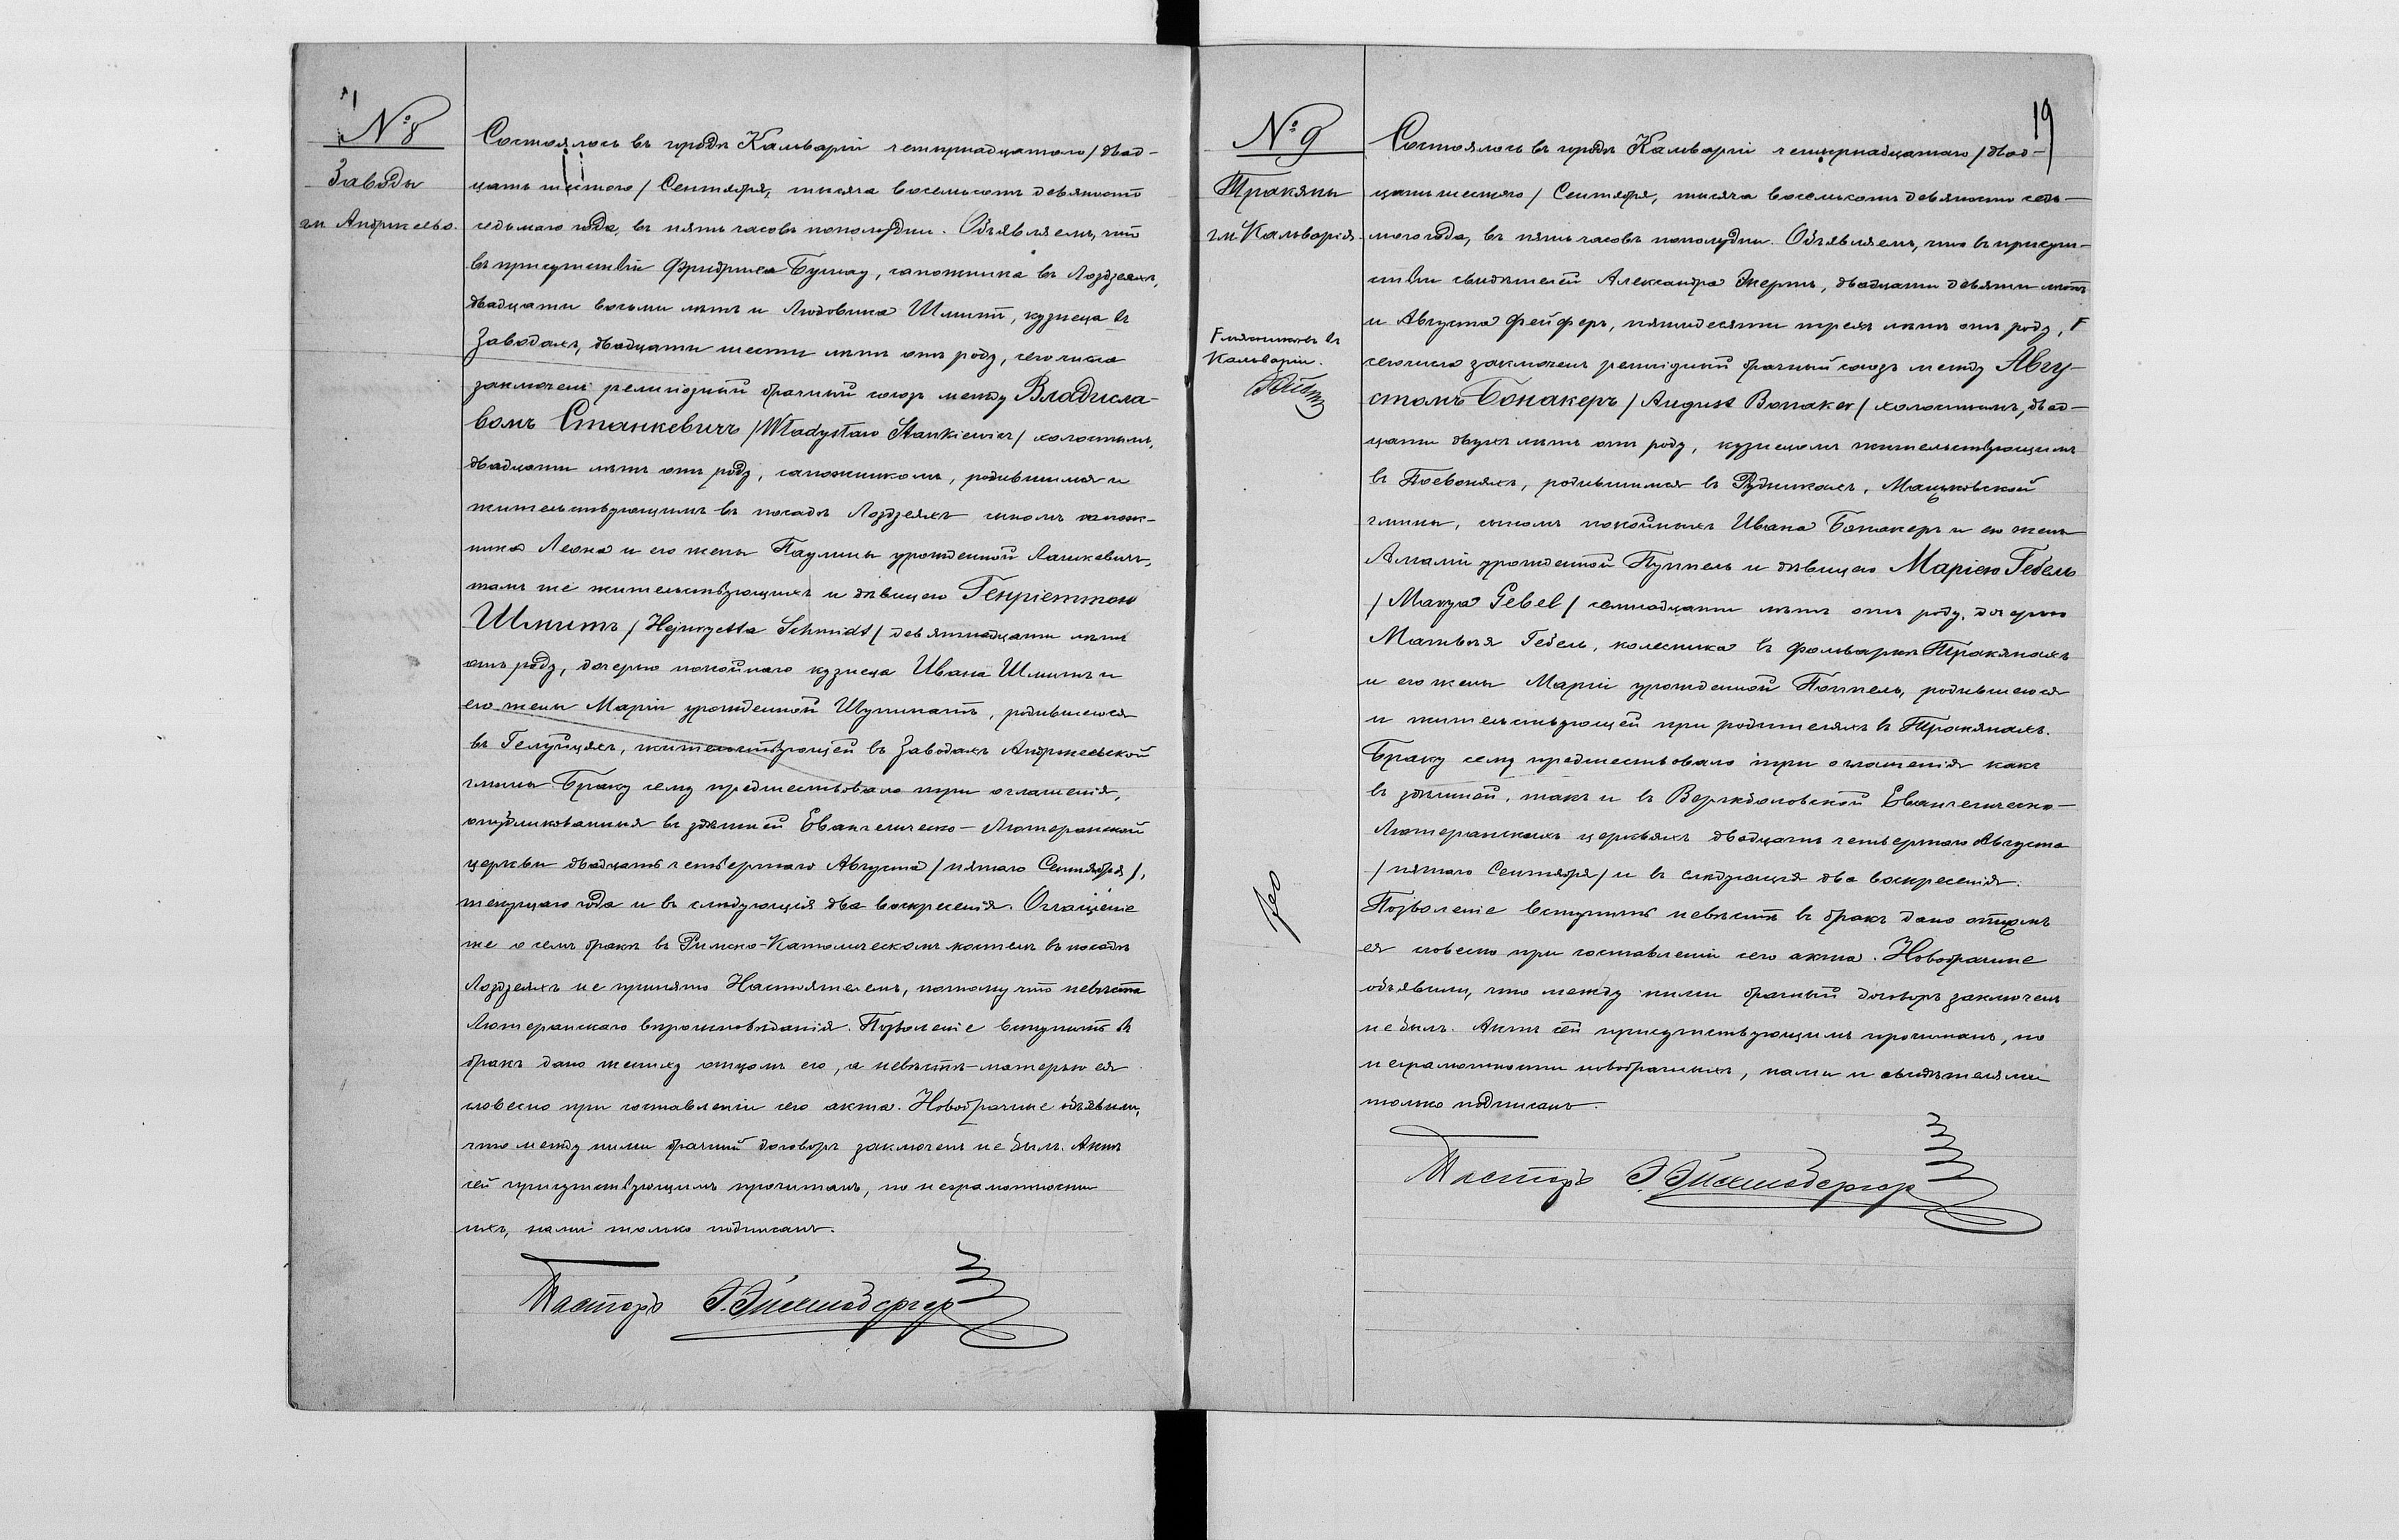 № 8
Заводы
гм. Андржеево.
Состоялось въ городѣ Кальваріи четырнадцатаго / двад-
цать шестого / Сентября, тысяча восемьсотъ девяносто
седьмаго года, въ пять часовъ пополудни. Объявляемъ, что
въ присутствіи Фридриха, сапожника въ Лоздзеяхъ,
двадцати восьми лѣтъ и Людовика Шмитъ, кузнеца въ
Заводахъ, двадцати шести лѣтъ отъ роду, сего числа
заключенъ религіозный брачный союзъ между Владисла-
вомъ Станкевичъ / Władysław Stankiewicz / холостымъ,
двадцати лѣтъ отъ роду, сапожникомъ, родившимся и
жительствующимъ въ посадѣ Лоздзеяхъ сыномъ сапож-
ника Леона и его жены Паулины урожденной,
тамъ же жительствующихъ и дѣвицею Генріеттою
Шмитъ / Hejnryetta Schmidt / девятнадцати лѣтъ
отъ роду, дочерью покойнаго кузнеца Ивана Шмитъ и
его жены Маріи урожденной, родившеюся
въ, жительствующей въ Заводахъ Андржеевской
гмины Браку сему предшествовало три оглашенія,
опубликованныя въ здѣшней Евангелическо-Лютеранской
церкви двадцать четвертаго Августа / пятаго Сентября /,
текущаго года и въ слѣдующія два воскресенія. Оглашеніе
же о семъ бракѣ въ Римско-Католическомъ костелѣ въ посадѣ
Лоздзеяхъ не принято Настоятелемъ, потому что невѣста
Лютеранскаго вѣроисповѣданія. Позволеніе вступить въ
бракъ дано жениху отцомъ его, а невѣстѣ - матерью ея
словесно при составленіи сего акта. Новобрачные объявили,
что между ними брачный договоръ заключенъ не былъ. Актъ
сей присутствующимъ прочитанъ, по неграмотности
ихъ, нами только подписанъ.
Пасторъ
19
№ 9
Тракяны
гм. Кальварія.
Состоялось въ городѣ Кальваріи четырнадцатаго / двад-
цать шестого / Сентября, тысяча восемьсотъ девяносто седь-
мого года, въ пять часовъ пополудни. Объявляемъ, что въ присут-
ствіи свидѣтелей Александра, двадцати девяти лѣтъ
и Августа Фейферъ, пятидесяти трехъ лѣтъ отъ роду, F
F мясниковъ въ
Кальваріи.
сего числа заключенъ религіозный брачный союзъ между Авгу-
стомъ Бонакеръ / August Bonaker / холостымъ, двад-
цати двухъ лѣтъ отъ роду, кузнецомъ жительствующимъ
въ Поевоняхъ, родившимся въ Рудникахъ, Мацьковской
гмины, сыномъ покойныхъ Ивана Бонакеръ и его жены
Амаліи урожденной Пуппель и дѣвицею Маріею Гебель
/ Marya Gebel / семнадцати лѣтъ отъ роду, дочерью
Матвѣя Гебель, колесника въ фольваркѣ Тракянахъ
и его жены Маріи урожденной Поппель, родившеюся
и жительствующей при родителяхъ въ Тракянахъ.
Браку сему предшествовало три оглашенія какъ
въ здѣшней, такъ и въ Вержболовской Евангелическо-
Лютеранскихъ церквяхъ двадцать четвертаго Августа
/ пятаго Сентября / и въ слѣдующія два воскресенія.
Позволеніе вступить невѣстѣ въ бракъ дано отцомъ
ея словесно при составленіи сего акта. Новобрачные
объявили, что между ними брачный договоръ заключенъ
не былъ. Актъ сей присутствующимъ прочитанъ, по
неграмотности новобрачныхъ, нами и свидѣтелями
только подписанъ.
Пасторъ